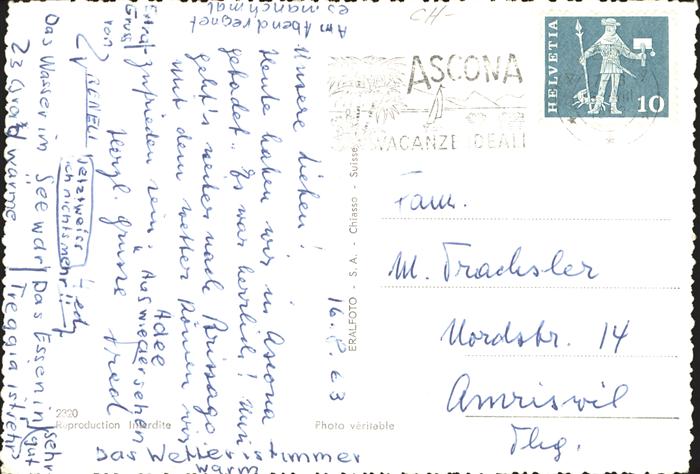 CH-
HELVETIA
10
ASCONA
VACANZE IDEALI
Fam.
M. Trachsler
Nordstr. 14
Amriswil
Thg.
16. 8. 63
Unsere Lieben!
Heute haben wir in Ascona
gebadet. Es war herrlich! Nun
geht's weiter nach Brissago.
Mit dem Wetter können wir
zufrieden sein.
Herzl. Grüsse
Fred
Adee
Auf wiedersehen
Am Abend regnet
es manchmal
von
RENELI
Jetzt weiss
ich nichts mehr!!
Das Wasser im See war
23 Grad wärme
Das Essen in
Treggia ist sehr
sehr
gut
Das Wetter ist immer
warm
ERALFOTO - S. A. - Chiasso - Suisse
2320
Reproduction interdite
Photo véritable